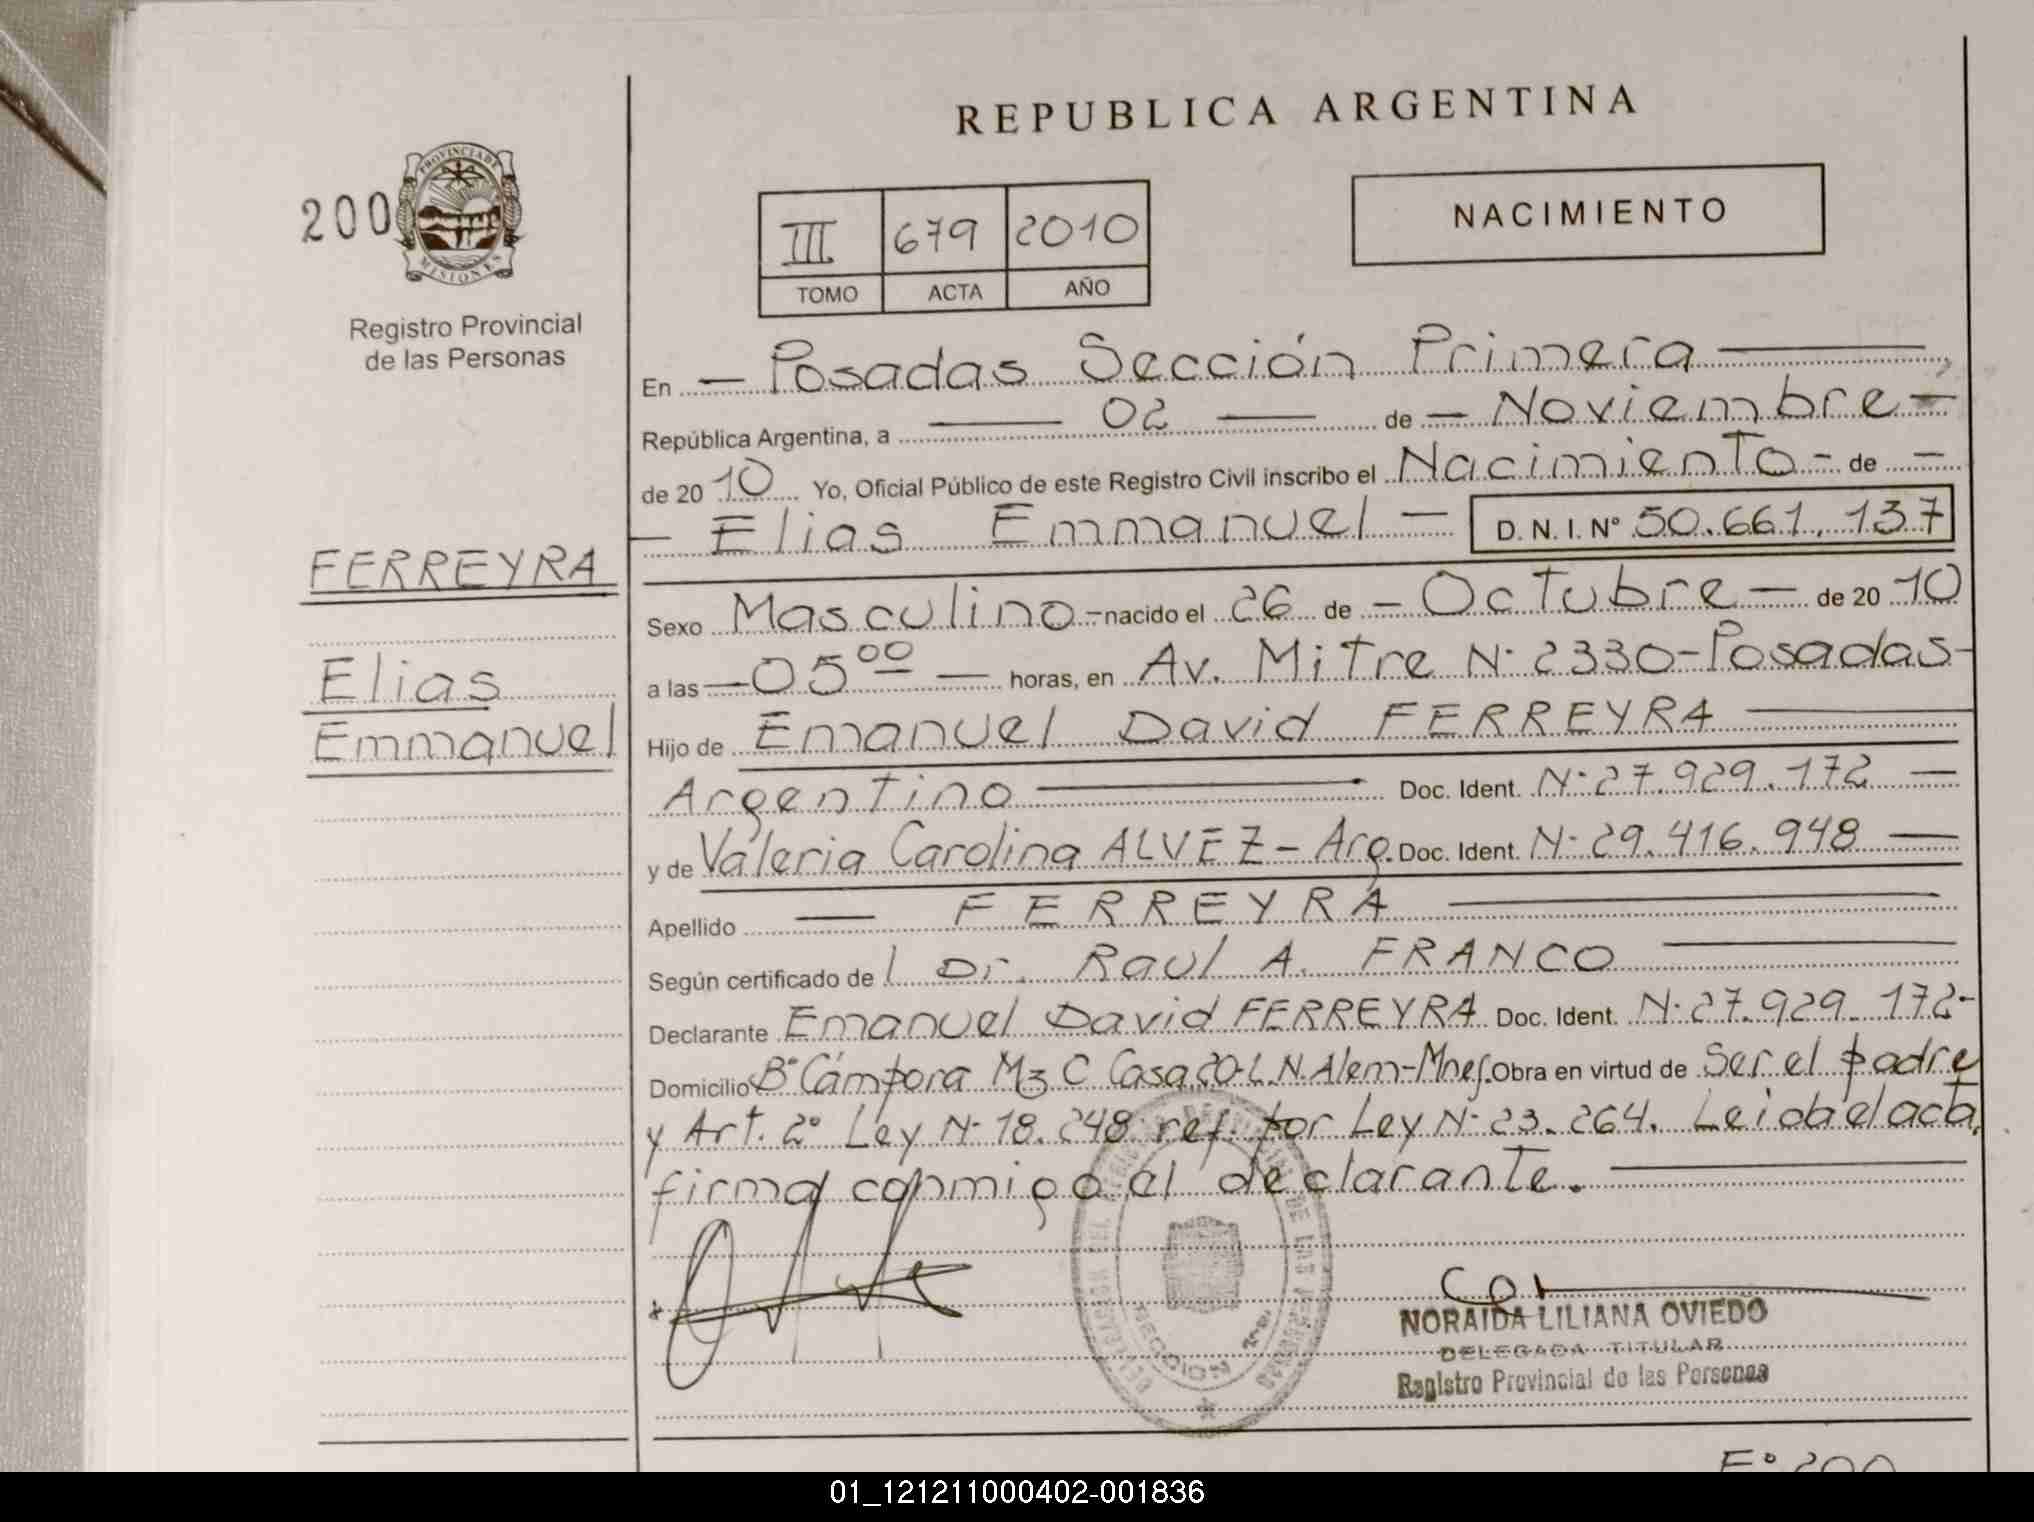 REPUBLICA ARGENTINA
200
PROVINCIA DE
MISIONES
Registro Provincial
de las Personas
III 679 2010
TOMO ACTA AÑO
NACIMIENTO
En — Posadas Sección Primera —,
República Argentina, a — 02 — de — Noviembre —
de 20 10 Yo, Oficial Público de este Registro Civil inscribo el Nacimiento - de —
— Elias Emmanuel — D. N. I. Nº 50.661.137
FERREYRA
Elias
Emmanuel
Sexo Masculino - nacido el 26 de — Octubre — de 20 10
a las — 05 00 — horas, en Av. Mitre N· 2330 - Posadas -
Hijo de Emanuel David FERREYRA —
Argentino — Doc. Ident. N· 27.929.172 —
y de Valeria Carolina ALVEZ - Arg. Doc. Ident. N· 29.416.948 —
Apellido — FERREYRA —
Según certificado de l Dr. Raul A. FRANCO —
Declarante Emanuel David FERREYRA Doc. Ident. N· 27.929.172 -
Domicilio Bº Cámpora Mz C Casa 20 - L.N. Alem - Mnes. Obra en virtud de Ser el padre
y Art. 2º Ley N· 18.248 ref. por Ley N· 23.264. Leida el acta,
firma conmigo el declarante. —
NORAIDA LILIANA OVIEDO
DELEGADA TITULAR
Registro Provincial de las Personas
Fº 200
01_121211000402-001836